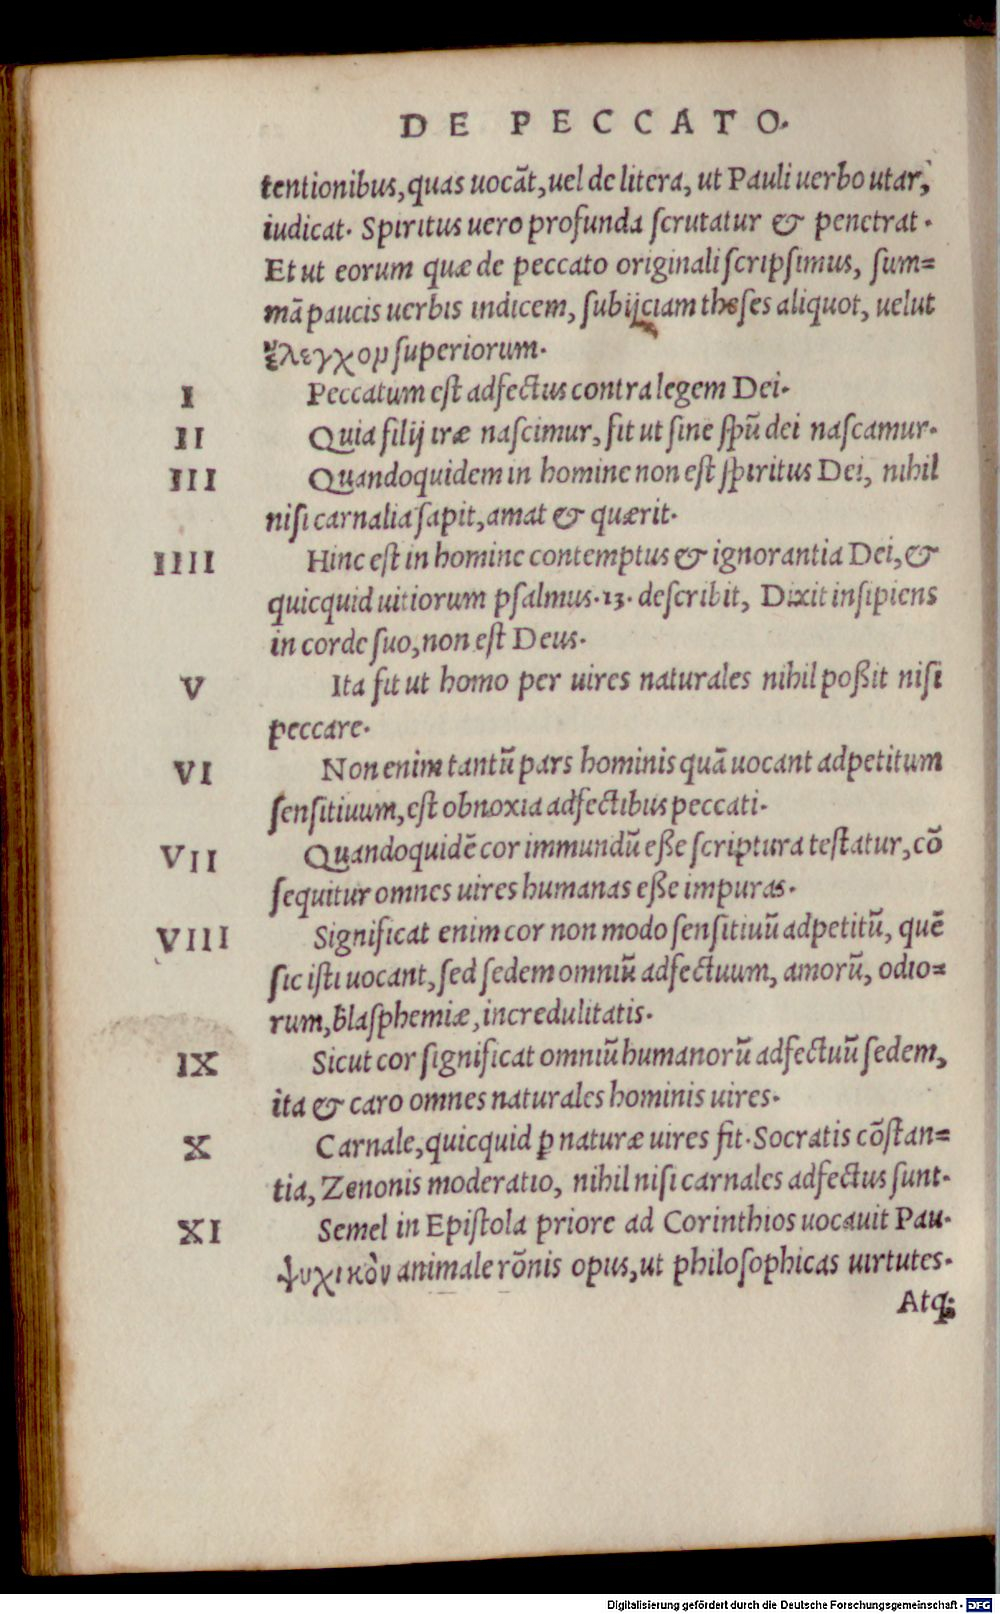 DE PECCATO.
tentionibus, quas uocāt, uel de litera, ut Pauli uerbo utar,
iudicat. Spiritus uero profunda ſcrutatur & penetrat.
Et ut eorum quæ de peccato originali ſcripſimus, ſum=
mā paucis uerbis indicem, ſubijciam theſes aliquot, uelut
ἔλεγχομ ſuperiorum.
I Peccatum eſt adfectus contra legem Dei.
II Quia filij iræ naſcimur, fit ut ſine ſpū dei naſcamur.
III Quandoquidem in homine non eſt ſpiritus Dei, nihil
niſi carnalia ſapit, amat & quærit.
IIII Hinc eſt in homine contemptus & ignorantia Dei, &
quicquid uitiorum pſalmus.13. deſcribit, Dixit inſipiens
in corde ſuo, non eſt Deus.
V Ita fit ut homo per uires naturales nihil poßit niſi
peccare.
VI Non enim tantū pars hominis quā uocant adpetitum
ſenſitiuum, eſt obnoxia adfectibus peccati.
VII Quandoquidē cor immundū eße ſcriptura teſtatur, cō
ſequitur omnes uires humanas eße impuras.
VIII Significat enim cor non modo ſenſitiuū adpetitū, quē
ſic iſti uocant, ſed ſedem omniū adfectuum, amorū, odio=
rum, blaſphemiæ, incredulitatis.
IX Sicut cor ſignificat omniū humanorū adfectuū ſedem,
ita & caro omnes naturales hominis uires.
X Carnale, quicquid ꝑ naturæ uires fit. Socratis cōſtan=
tia, Zenonis moderatio, nihil niſi carnales adfectus ſunt.
XI Semel in Epiſtola priore ad Corinthios uocauit Pau.
ψυχικὸν animale rōnis opus, ut philoſophicas uirtutes.
Atq;
Digitalisierung gefördert durch die Deutsche Forschungsgemeinschaft - DFG